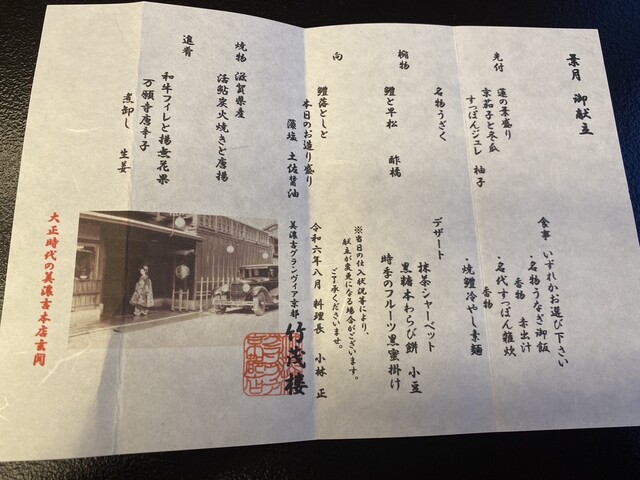 葉月 御献立
先付
蓮の葉盛り
京茄子と冬瓜
すっぽんジュレ 柚子
名物うざく
椀物
鱧と早松 酢橘
向
鱧落としと
本日のお造り盛り
藻塩 土佐醤油
焼物
滋賀県産
活鮎炭火焼きと唐揚
進肴
和牛フィレと揚無花果
万願寺唐辛子
煮卸し 生姜
食事 いずれかお選び下さい
・名物うなぎ御飯
香物 赤出汁
・名代すっぽん雑炊
香物
・焼鱧冷やし素麺
デザート
抹茶シャーベット
黒糖本わらび餅 小豆
時季のフルーツ黒蜜掛け
※当日の仕入状況等により、
献立が変更になる場合がございます。
ご了承くださいませ。
令和六年八月 料理長 小林 正
美濃吉グランヴィア京都 竹茂楼
大正時代の美濃吉本店玄関